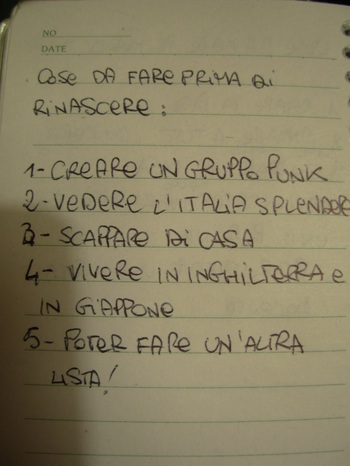 NO
DATE
COSE DA FARE PRIMA DI
RINASCERE:
1-CREARE UN GRUPPO PUNK
2-VEDERE L'ITALIA SPLENDER
3-SCAPPARE DI CASA
4-VIVERE IN INGHILTERRA e
IN GIAPPONE
5-POTER FARE UN'ALTRA
LISTA!